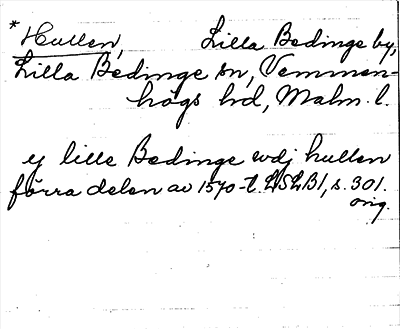 *Hullen, Lilla Bedinge by,
Lilla Bedinge sn, Vemmen-
högs hd, Malm. l.
ij lille Bedinge wdj hullen
förra delen av 1570-t. LSLB1, s. 301.
orig.